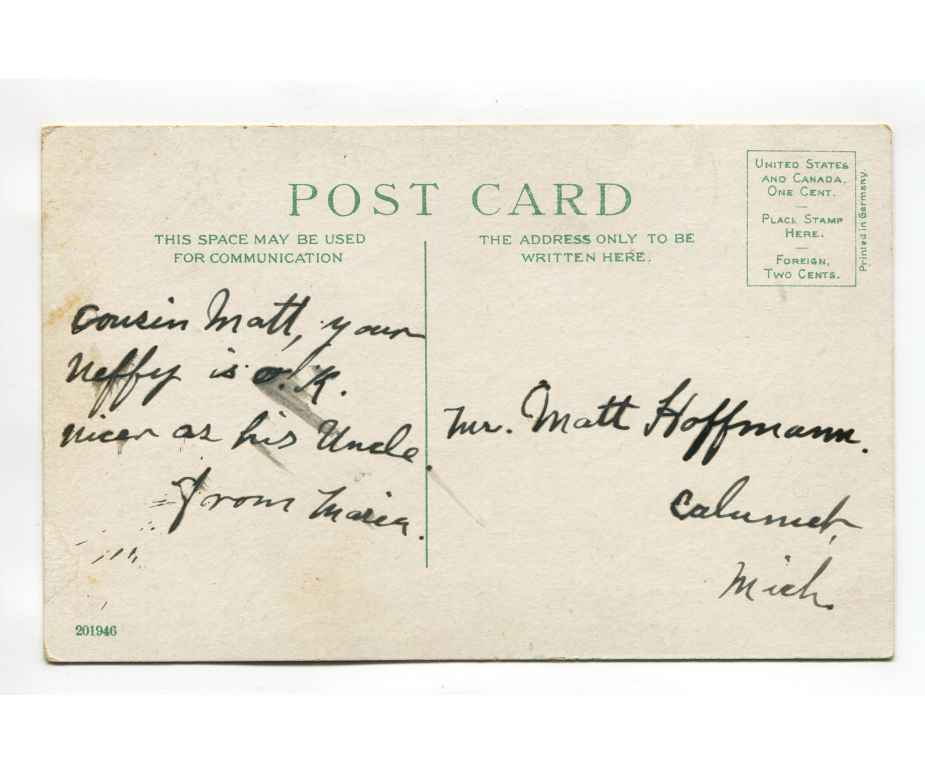 POST CARD
THIS SPACE MAY BE USED
FOR COMMUNICATION
THE ADDRESS ONLY TO BE
WRITTEN HERE.
UNITED STATES
AND CANADA,
ONE CENT.
PLACE STAMP
HERE.
FOREIGN,
TWO CENTS.
Printed in Germany.
Cousin Matt, your
Neffy is O.K.
nicer as his Uncle.
From Maria.
Mr. Matt Hoffmann.
Calumet,
Mich.
201946